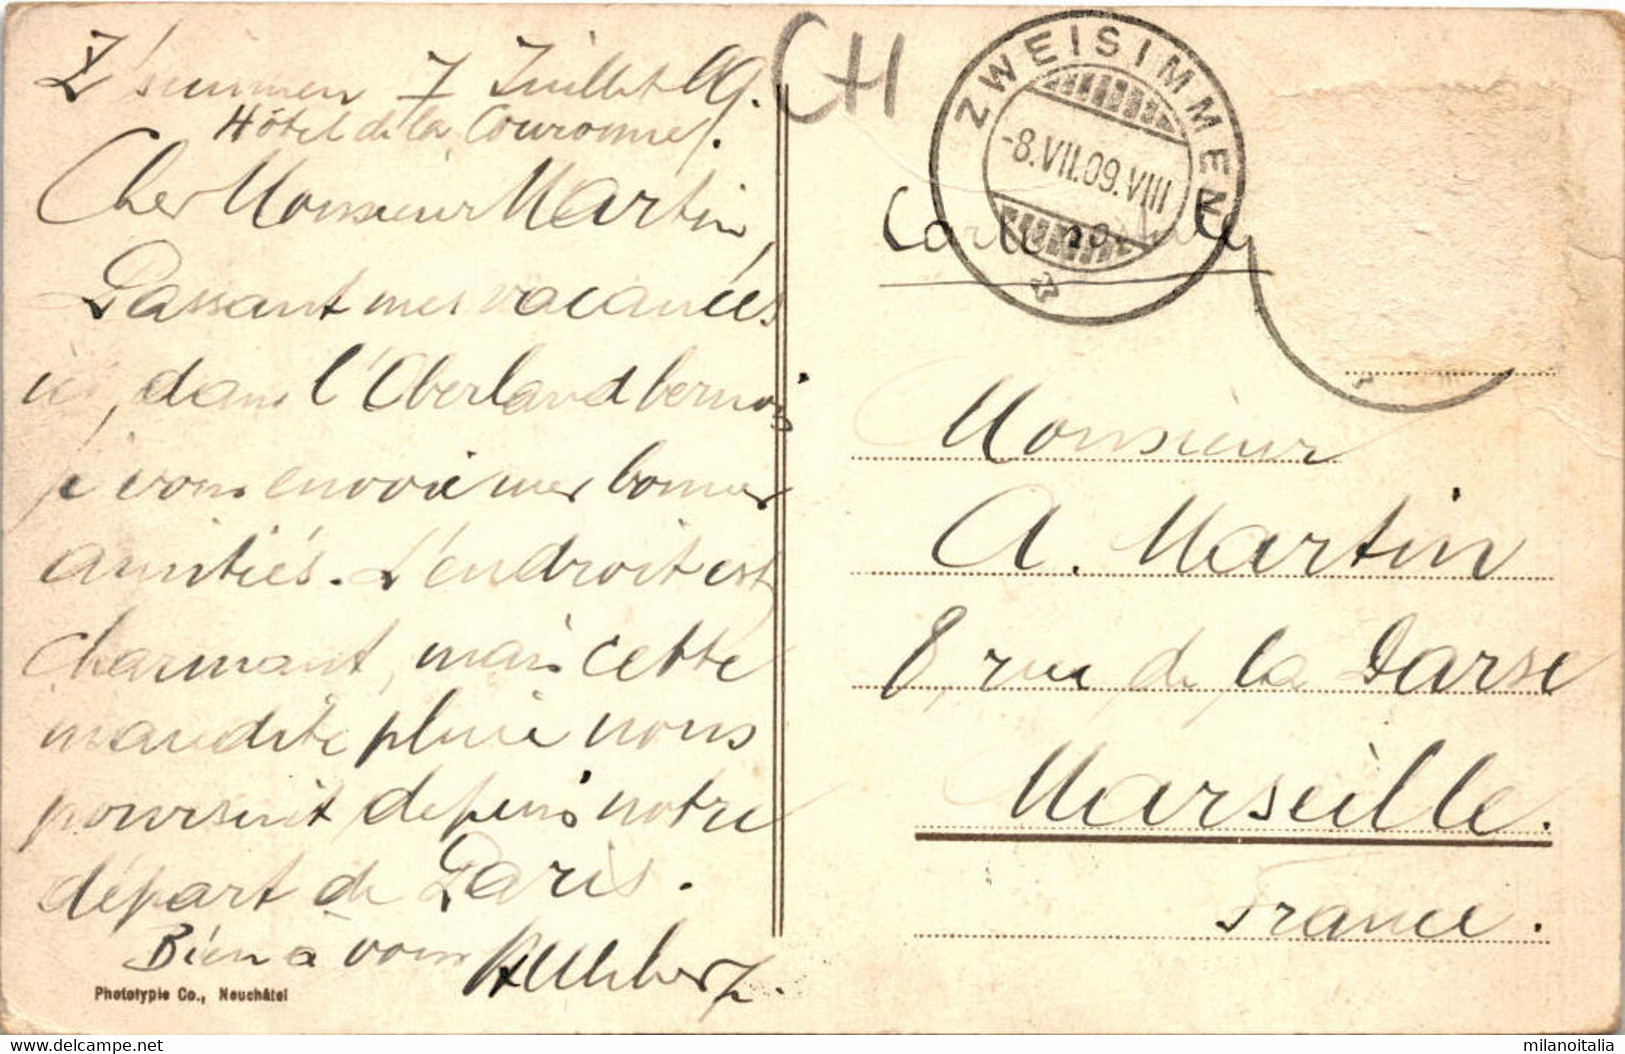 Z'simmen 7 Juillet 09.
Hôtel de la Couronne.
Cher Monsieur Martin,
Passant mes vacances
ici, dans l'Oberland bernois
je vous envoie mes bonnes
amitiés. L'endroit est
charmant, mais cette
maudite pluie nous
poursuit depuis notre
départ de Paris.
Bien à vous
Phototypie Co., Neuchâtel
CH
ZWEISIMMEN
-8.VII.09.VIII
Carte postale
Monsieur
A. Martin
8, rue de la Darse
Marseille.
France.
www.delcampe.net
milanoitalia